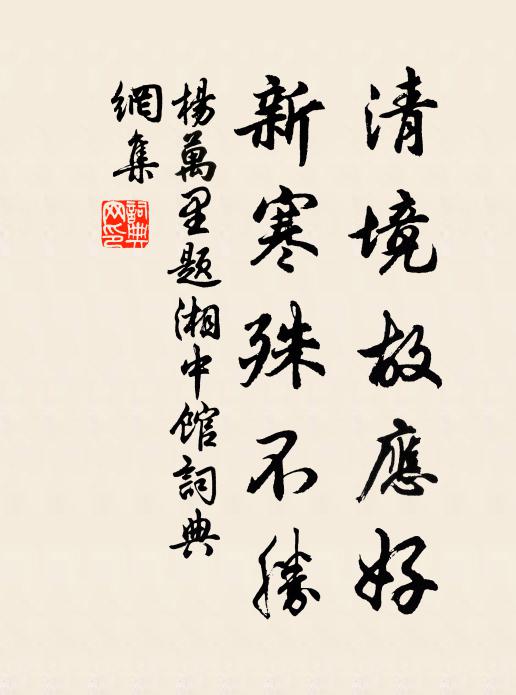 清境故應好
新寒殊不勝
楊萬里題湘中館詞典
網集
詞典
网印